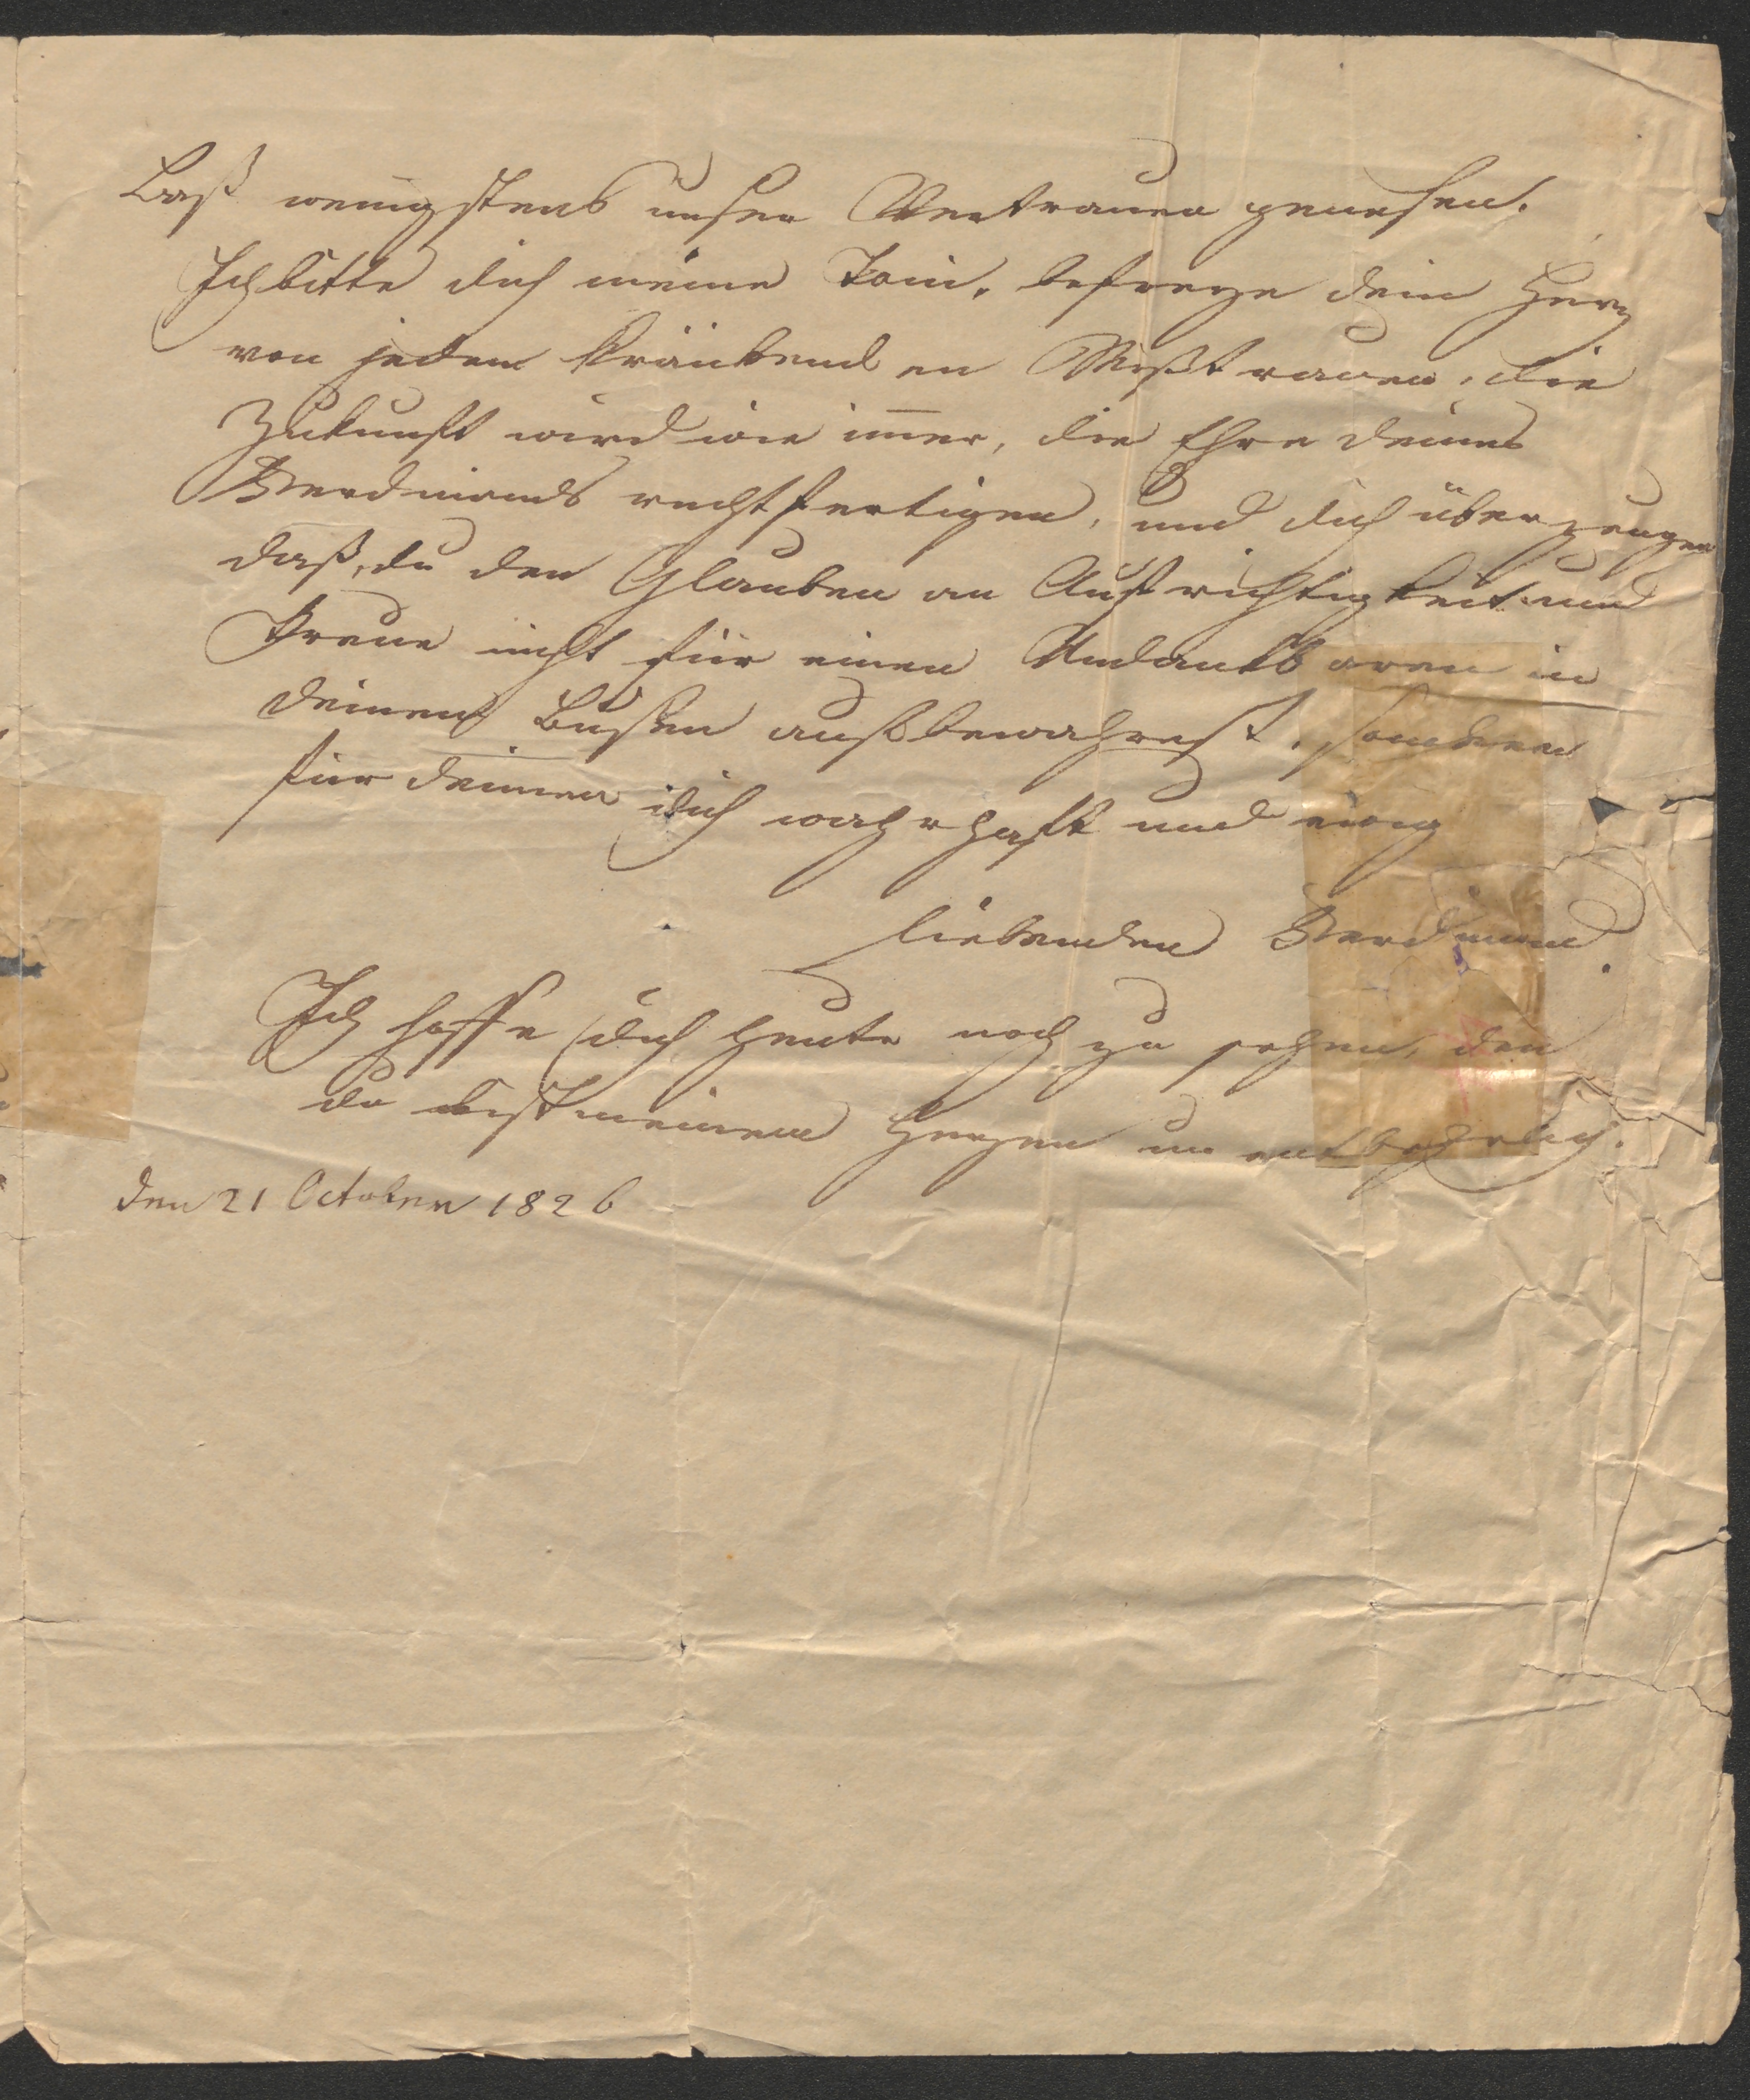 Laß wenigstens unser Vertrauen genesen.
Ich bitte dich meine Toni, befreye dein Herz
von jedem kränkenden Mißtrauen, die
Zukunft wird wie im̅er, die Ehre deines
Werdmunds rechtfertigen, und dich überzeugen
daß, du den Glauben an Aufrichtigkeit und
Treue nicht für einen Undankbaren in
deinem Busen aufbewahrest, sondern
für deinen dich wahrhaft und ewig
liebenden
Ich hoffe dich heute noch zu sehen, den
du bist meinem Herzen un entbehrlich.
den 21 October 1826